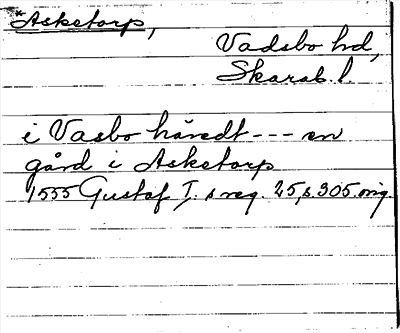 *Asketorp,
Vadsbo hd,
Skarab. l.
i Vasbo häredt --- en
gård i Asketorp
1555 Gustaf I. s reg. 25, s. 305. orig.